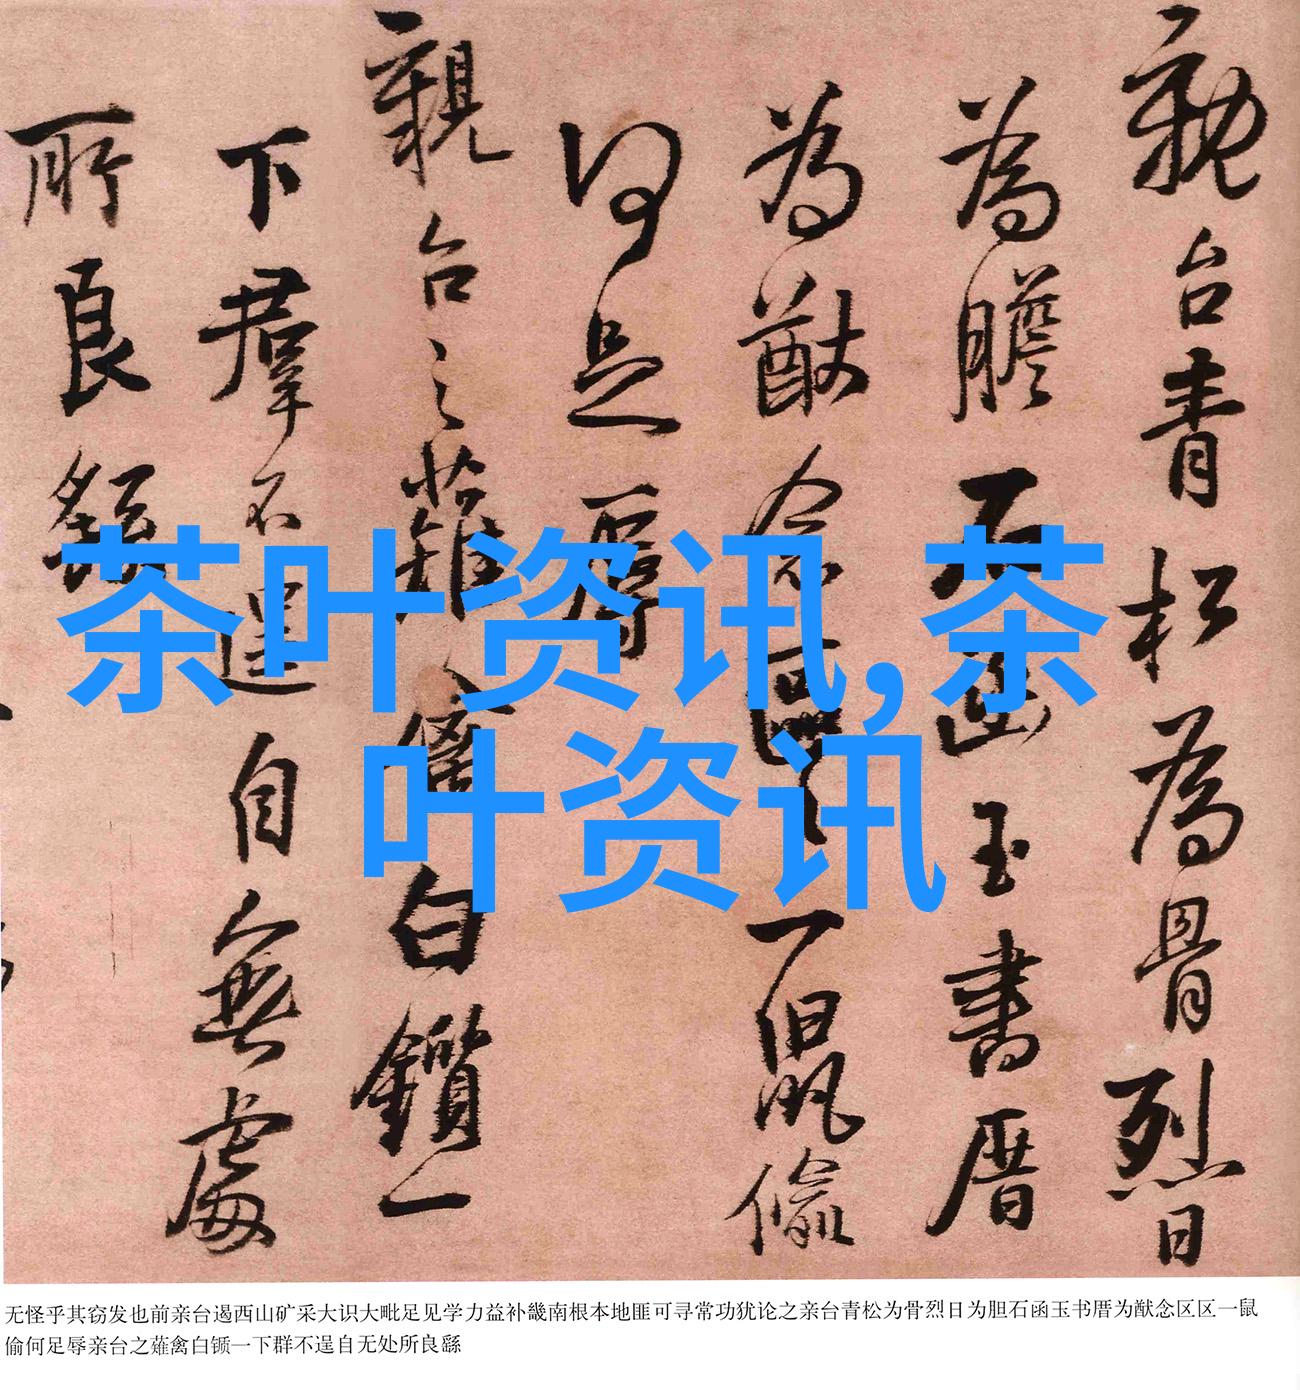 親台青松為骨烈日
為膽石函玉書厝
為猷念區〻一鼠偷
何足辱
親台之薙禽白鑕一
下羣不逞自無處
所良繇
茶叶资讯,茶
叶资讯
无怪乎其窃发也前亲台遏西山矿采大识大毗足见学力益补畿南根本地匪可寻常功犹论之亲台青松为骨烈日为胆石函玉书厝为猷念区区一鼠
偷何足辱亲台之薙禽白锧一下群不逞自无处所良繇